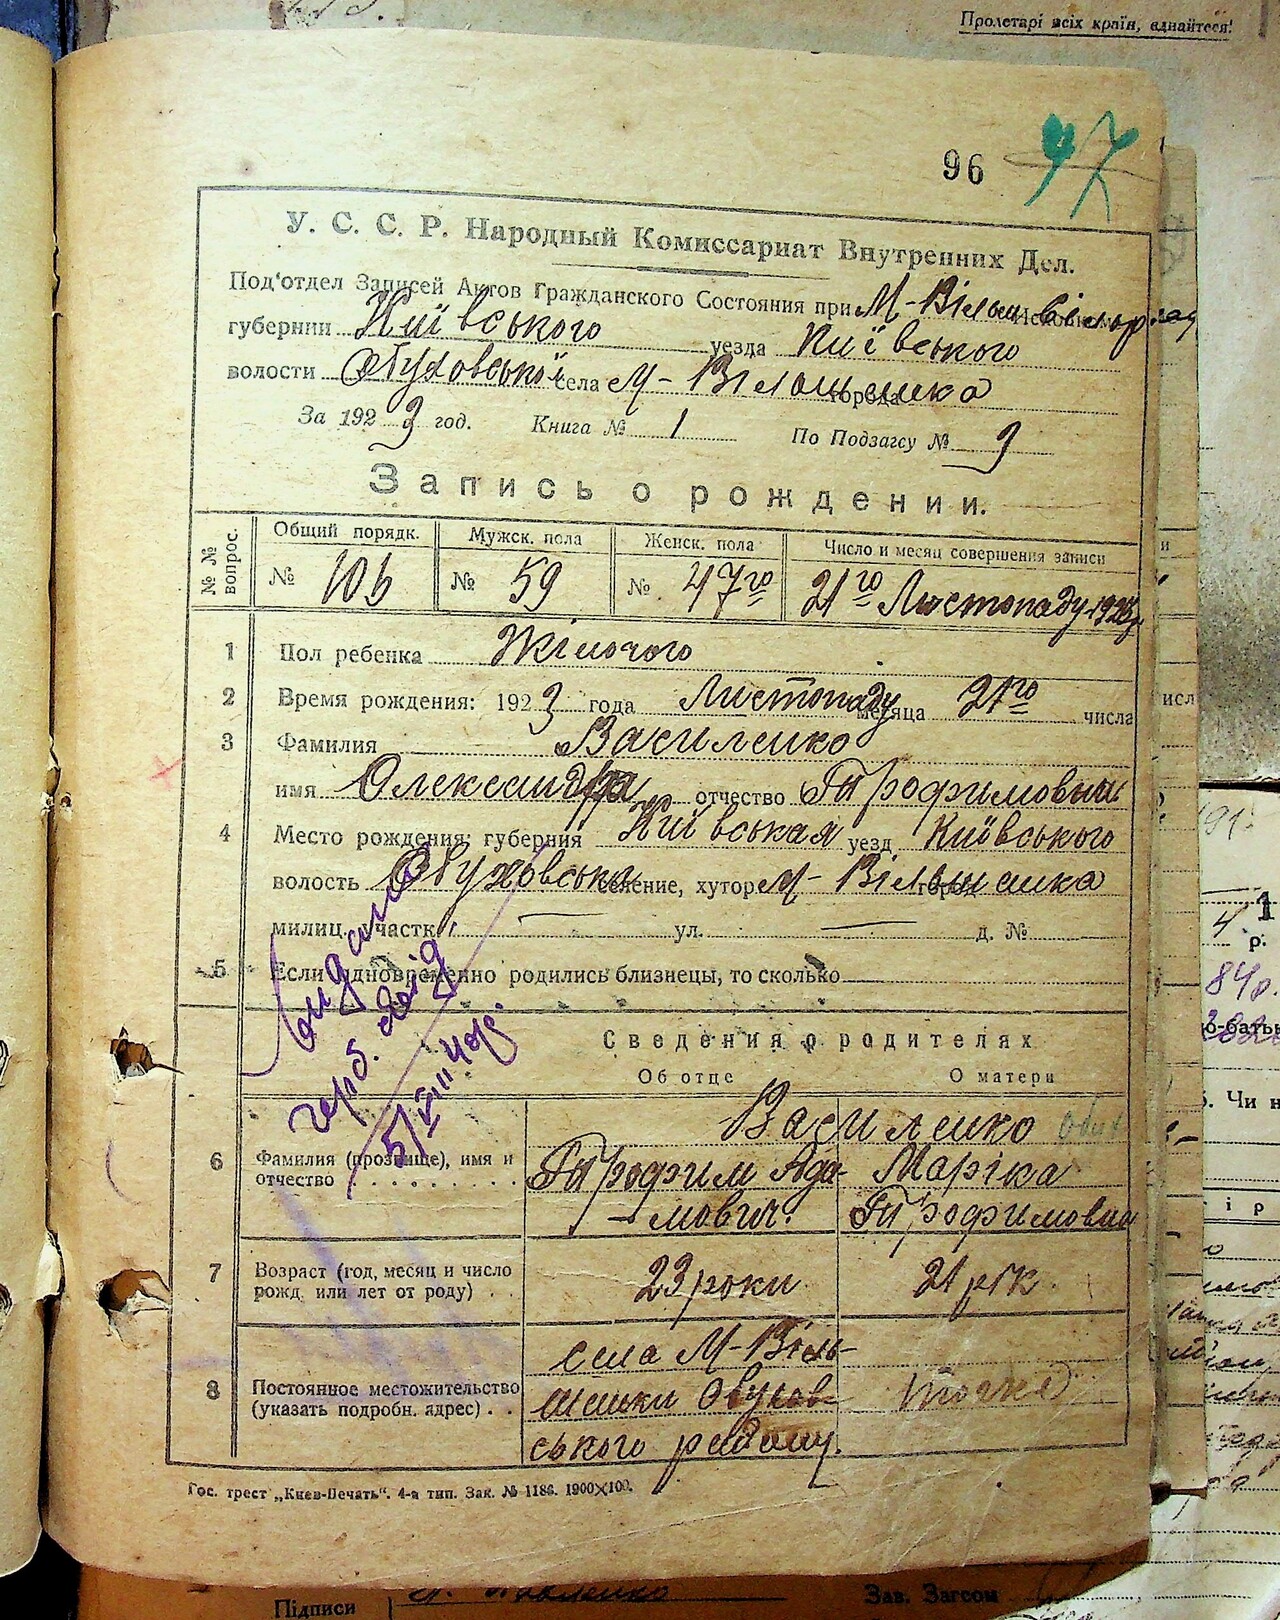 Пролетарі всіх країн, єднайтеся!
96 97
У. С. С. Р. Народный Комиссариат Внутренних Дел.
Под'отдел Записей Актов Гражданского Состояния при М-Вільш
губернии Київського уезда Київського
волости Обуховської села М-Вільшанка города
За 1923 год. Книга № 1 По Подзагсу № 3
Запись о рождении.
№ № вопрос. Общий порядк. Мужск. пола Женск. пола Число и месяц совершения записи
№ 106 № 59 № 47го 21го Листопаду 1923р
1 Пол ребенка Жіночого
2 Время рождения: 1923 года Листопаду месяца 21го числа
3 Фамилия Василенко
имя Олександра отчество Трофимовна
4 Место рождения: губерния Київская уезд Київського
волость Обуховська селение, хутор М-Вільшанка город
милиц. участк. ул. д. №
5 Если одновременно родились близнецы, то сколько
видано
герб. свід
5/VIII 40р.
Сведения о родителях
Об отце О матери
Василенко
6 Фамилия (прозвище), имя и отчество Трофим Ада- Маріка
мович. Трофимовна
7 Возраст (год, месяц и число рожд. или лет от роду) 23 роки 21 рік
села М-Віль-
8 Постоянное местожительство (указать подробн. адрес) шанки Обухов-
ського району.
Гос. трест „Киев-Печать“. 4-я тип. Зак. № 1186. 1900×100.
Підписи Зав. Загсом